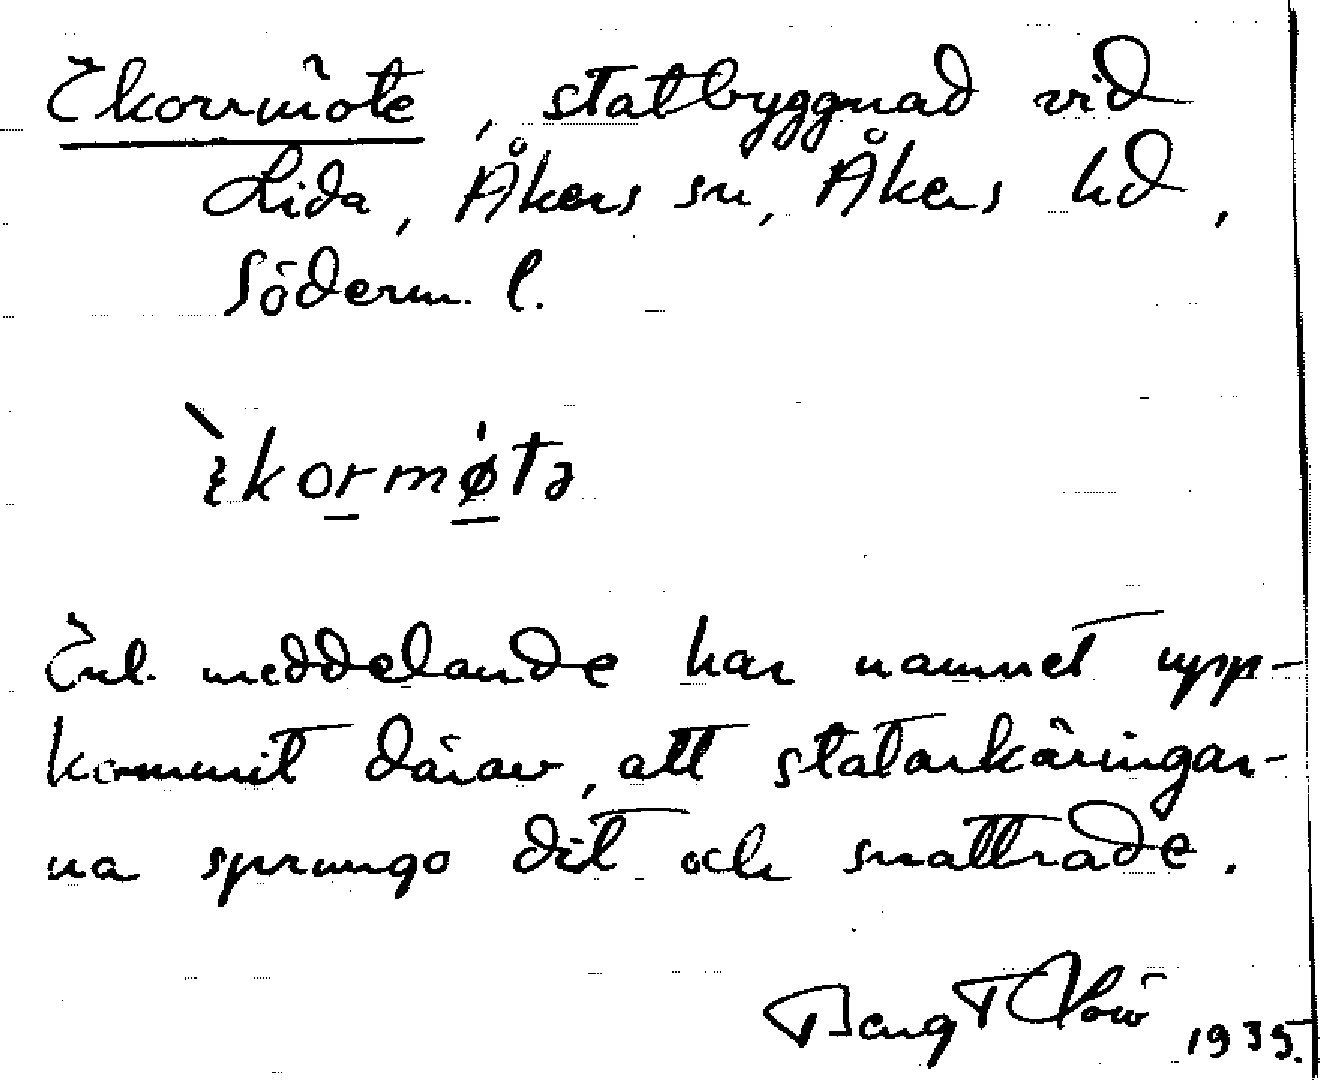 Ekorrmöte, statbyggnad vid
Lida, Åkers sn, Åkers hd,
Söderm. l.
ὲkormø̀tə
Enl. meddelande har namnet upp-
kommit därav, att statarkäringar-
na sprungo dit och snattrade.
Bengt 1935.